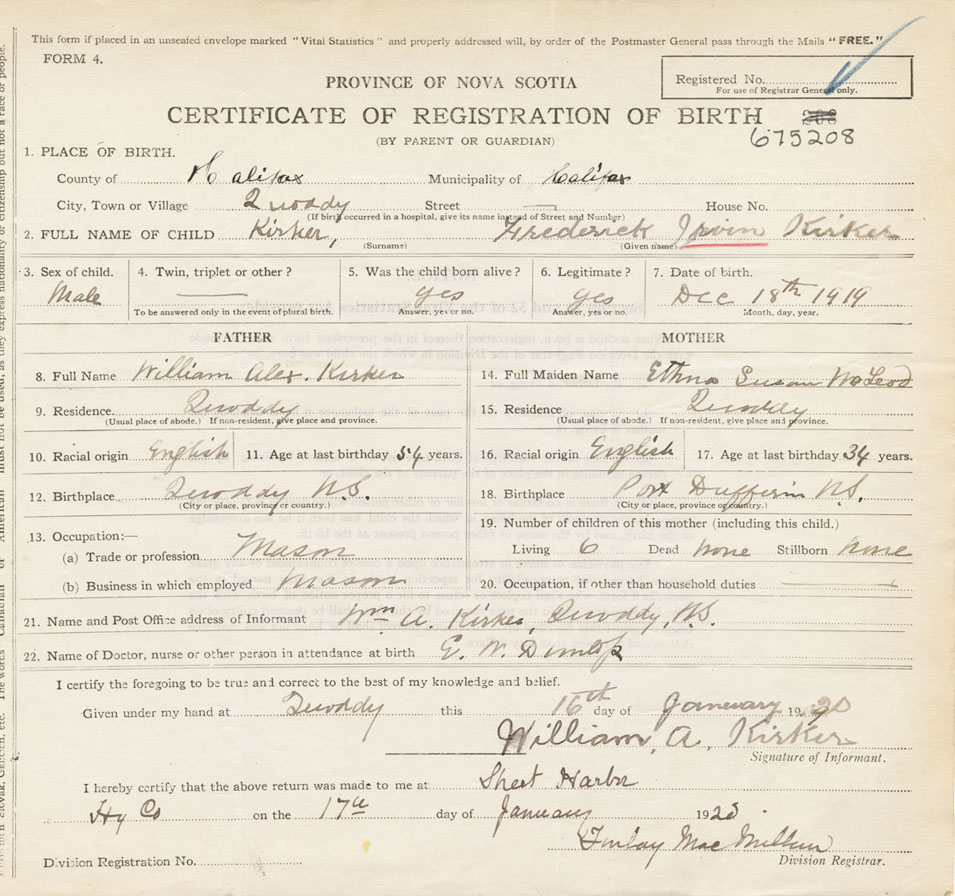 This form if placed in an unsealed envelope marked "Vital Statistics" and properly addressed will, by order of the Postmaster General pass through the Mails "FREE."
FORM 4.
Registered No.
For use of Registrar General only.
PROVINCE OF NOVA SCOTIA
CERTIFICATE OF REGISTRATION OF BIRTH
675208
(BY PARENT OR GUARDIAN)
1. PLACE OF BIRTH.
County of Halifax Municipality of Halifax
City, Town or Village Quoddy Street — House No.
(If birth occurred in a hospital, give its name instead of Street and Number)
2. FULL NAME OF CHILD Kirker, Frederick Irvin Kirker
(Surname) (Given name)
3. Sex of child. 4. Twin, triplet or other? 5. Was the child born alive? 6. Legitimate? 7. Date of birth.
Male — yes yes Dec 18th 1919
To be answered only in the event of plural birth. Answer, yes or no. Answer, yes or no. Month, day, year.
FATHER MOTHER
8. Full Name William Alex. Kirker 14. Full Maiden Name Ethna Susan McLeod
9. Residence. Quoddy 15. Residence Quoddy
(Usual place of abode.) If non-resident, give place and province. (Usual place of abode.) If non-resident, give place and province.
10. Racial origin English 11. Age at last birthday 54 years. 16. Racial origin English 17. Age at last birthday 34 years.
12. Birthplace Quoddy N.S. 18. Birthplace Port Dufferin N.S.
(City or place, province or country.) (City or place, province or country.)
13. Occupation:— 19. Number of children of this mother (including this child.)
(a) Trade or profession Mason Living 6 Dead none Stillborn none
(b) Business in which employed Mason 20. Occupation, if other than household duties —
21. Name and Post Office address of Informant Wm A. Kirker, Quoddy, N.S.
22. Name of Doctor, nurse or other person in attendance at birth E. W. Dunlop
I certify the foregoing to be true and correct to the best of my knowledge and belief.
Given under my hand at Quoddy this 16th day of January 1920
William, A, Kirker
Signature of Informant.
I hereby certify that the above return was made to me at Sheet Harbor
Hx Co on the 17th day of January 1920
Finlay MacMillan
Division Registration No. Division Registrar.